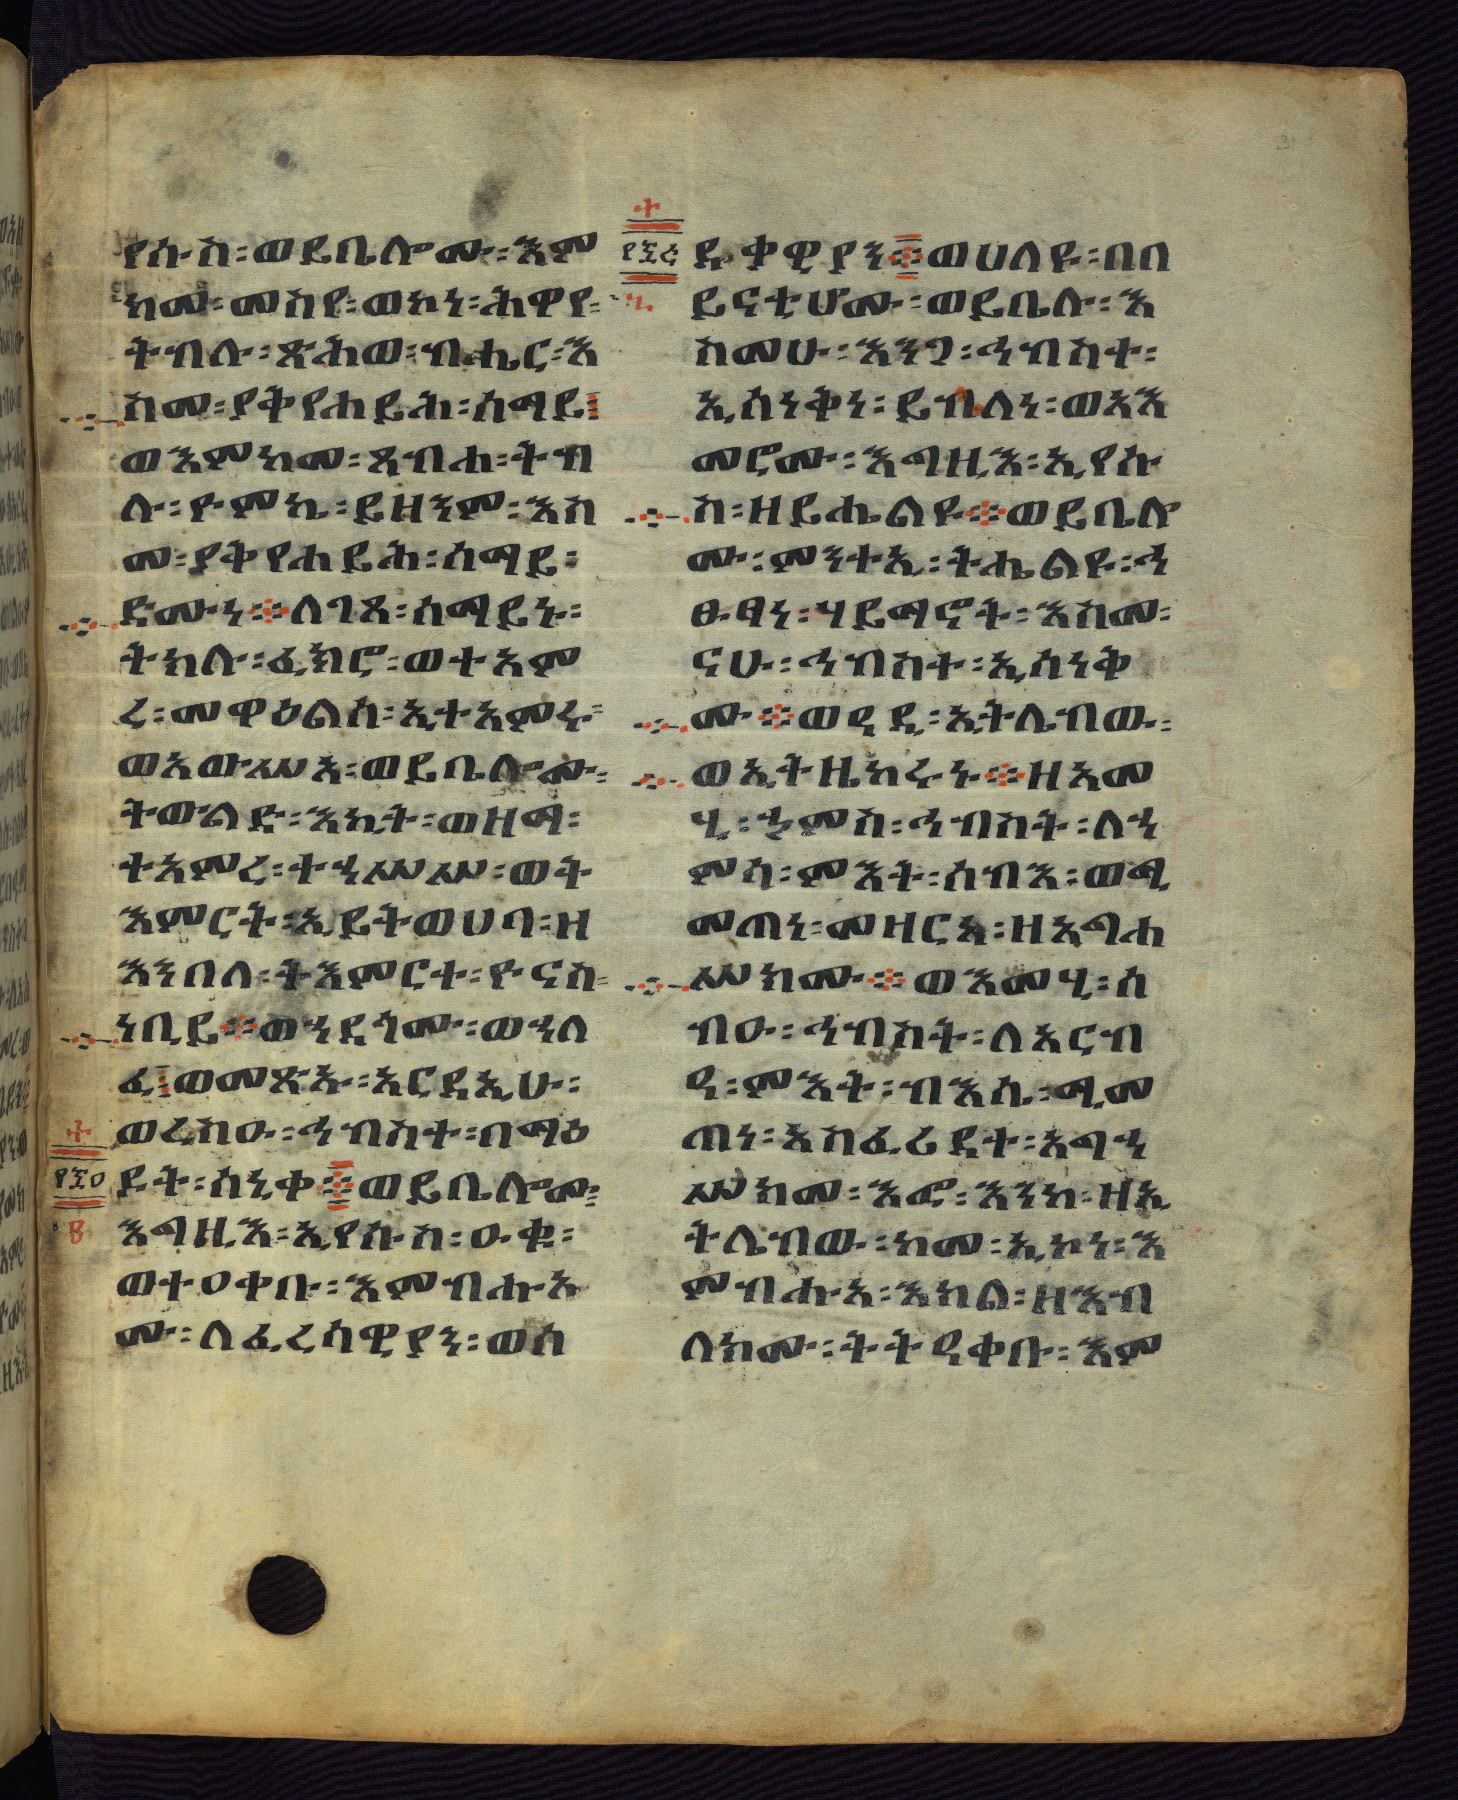 የሱስ፡ወይቤሎሙ፡እም
ከመ፡መስየ፡ወኮነ፡ሕዋየ፡
ትብሉ፡ጽሕወ፡ብሔር፡እ
ስመ፡ያቅየሐይሕ፡ሰማይ፤
ወእምከመ፡ጸብሐ፡ትብ
ሉ፡ዮምኪ፡ይዘንም፡እስ
መ፡ያቅየሐይሕ፡ሰማይ፡
ድሙን፨ለገጸ፡ሰማይኑ፡
ትክሉ፡ፈክሮ፡ወተአም
ረ፡መዋዕልሰ፡ኢተአምሩ፡
ወአውሥአ፡ወይቤሎሙ፡
ትውልድ፡እኪት፡ወዘማ፡
ተአምረ፡ተኀሥሥ፡ወት
እምርት፡ኢይትወሀባ፡ዘ
እንበለ፡ትእምርተ፡ዮናስ፡
ነቢይ፨ወኀደጎሙ፡ወኀለ
ፈ፤ወመጽኡ፡አርዳኢሁ፡
ወረስዑ፡ኅብስተ፡በማዕ
ዶት፡ስኒቀ፨ወይቤሎሙ፡
እግዚእ፡ኢየሱስ፡ዑቁ፡
ወተዐቀቡ፡እምብሑአ
ሙ፡ለፈረሳዊያን፡ወሰ
ዱቃዊያን፨ወሀለዩ፡በበ
ይናቲሆሙ፡ወይቤሉ፡እ
ስመሁ፡እንጋ፡ኅብስተ፡
ኢሰነቅነ፡ይብለነ፡ወአእ
መሮሙ፡እግዚእ፡ኢየሱ
ስ፡ዘይሔልዩ፨ወይቤሎ
ሙ፡ምንተኢ፡ትሔልዩ፡ኅ
ፁፃነ፡ሃይማኖት፡እስመ፡
ናሁ፡ኅብስተ፡ኢሰነቅ
ሙ፨ወዓዲ፡ኢትሌብው፡
ወኢትዜከሩኑ፨ዘአመ
ሂ፡ኀምስ፡ኅብስት፡ለኀ
ምሳ፡ምእት፡ሰብእ፡ወሚ
መጠነ፡መዝርአ፡ዘአግሐ
ሥክሙ፨ወእመሂ፡ሰ
ብዑ፡ኅብስት፡ለአርብ
ዓ፡ምእት፡ብእሲ፡ሚመ
ጠነ፡አስፈሬዳተ፡አግኀ
ሥክመ፡እፎ፡እንከ፡ዘኢ
ትሌብው፡ከመ፡ኢኮነ፡እ
ምብሑአ፡እክል፡ዘእብ
ለክሙ፡ትትዓቀቡ፡እም